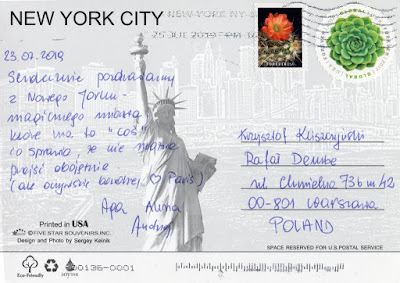 NEW YORK CITY
NEW YORK NY
25 JUL 2019 PM
GLOBAL
23.07.2019
Serdecznie pozdrawiamy
z Nowego Jorku -
magicznego miasta
które ma to "coś"
co sprawia, że nie można
przejść obojętnie
(ale oczywiście bardziej ♡ Paris)
Aga Alma
Andrzej
Krzysztof
Rafał Dembe
ul. Chmielna 73b m 42
00-801 Warszawa
POLAND
Printed in USA
© FIVE STAR SOUVENIRS INC.
Design and Photo by Sergey Keinik
SPACE RESERVED FOR U.S. POSTAL SERVICE
Eco-Friendly
00136-0001